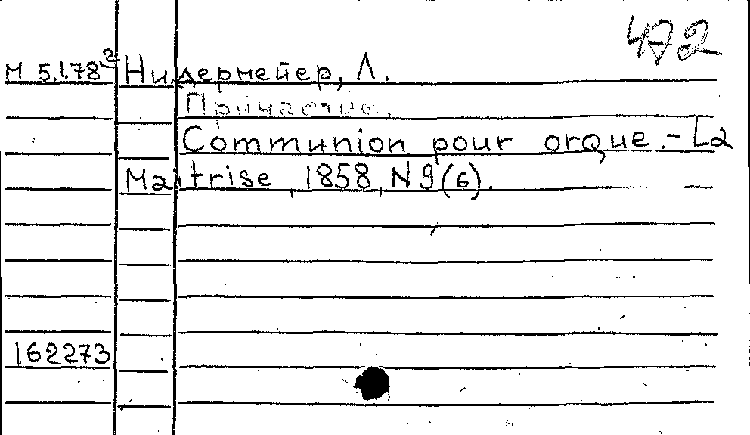 472
М 5.178² Нидермейер, Л.
Причастие.
Communion pour orque. - La
Maitrise, 1858, N9(6).
162273